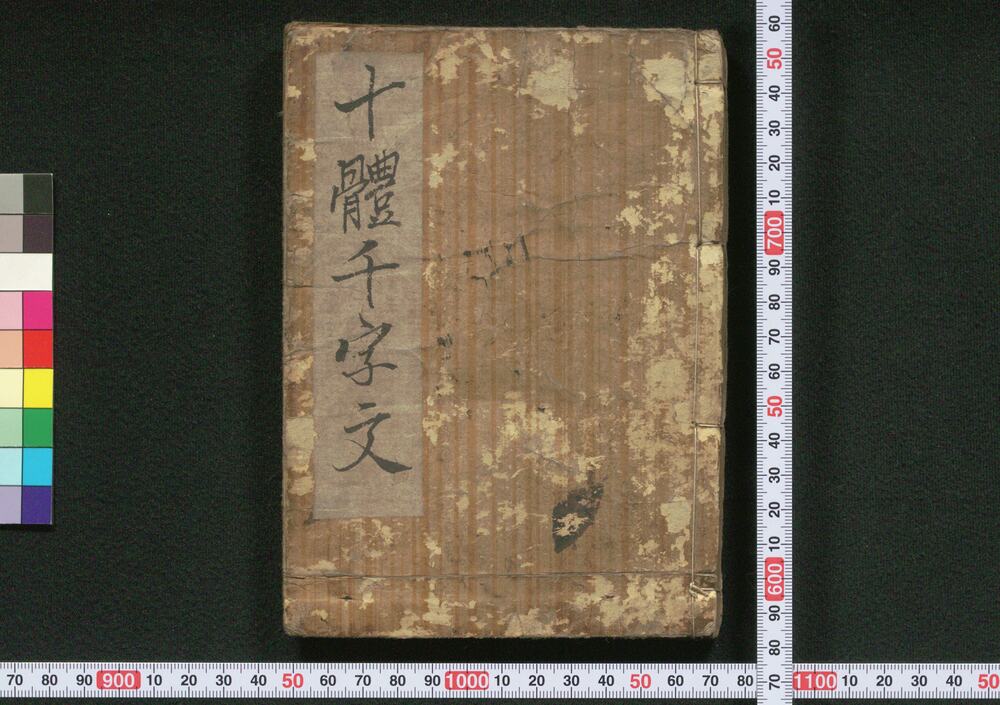 十體千字文
60
50
40
30
20
10
700
90
80
70
60
50
40
30
20
10
600
90
80
70
70 80 90 900 10 20 30 40 50 60 70 80 90 1000 10 20 30 40 50 60 70 80
1100 10 20 30 40 50